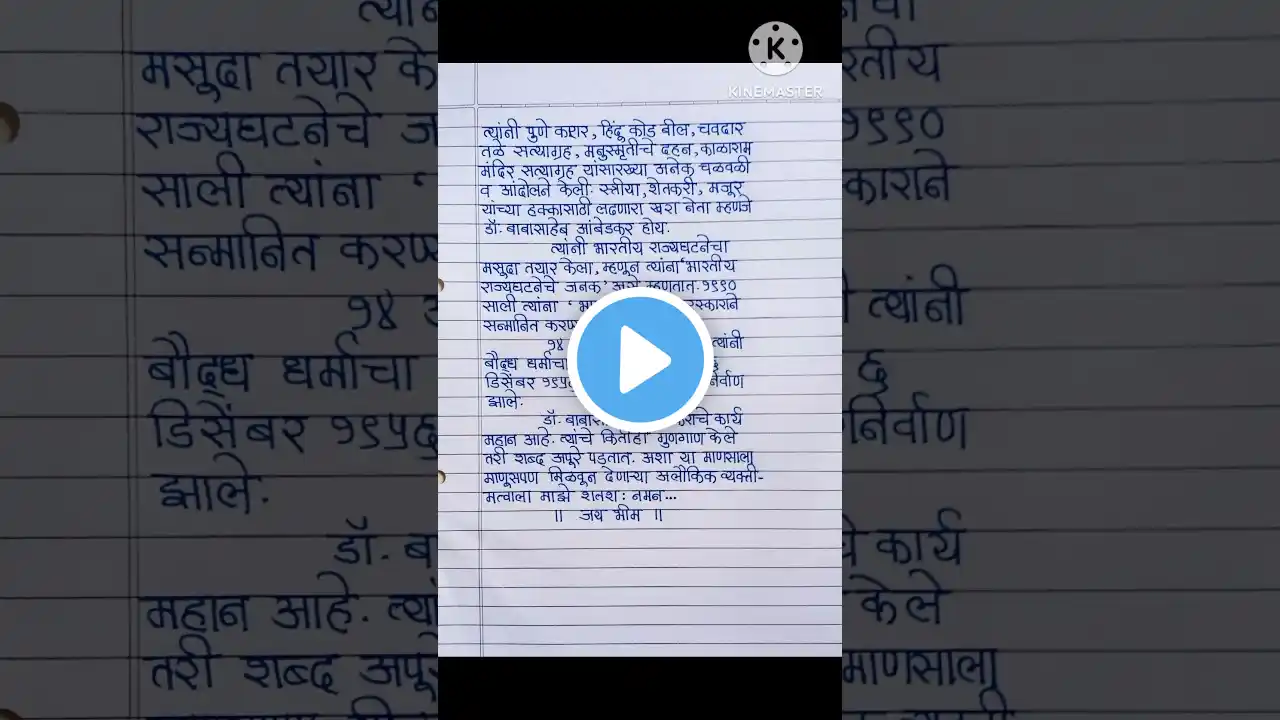 KINEMASTER
त्यांनी पुणे करार, हिंदू कोड बील, चवदार
तळे सत्याग्रह, मनुस्मृतीचे दहन, काळाराम
मंदिर सत्याग्रह यांसारख्या अनेक चळवळी
व आंदोलने केली. स्त्रीया, शेतकरी, मजूर
यांच्या हक्कासाठी लढणारा खरा नेता म्हणजे
डॉ. बाबासाहेब आंबेडकर होय.
त्यांनी भारतीय राज्यघटनेचा
मसुदा तयार केला, म्हणून त्यांना 'भारतीय
राज्यघटनेचे जनक' असे म्हणतात. १९९०
साली त्यांना '
सन्मानित
१४ त्यांनी
बौद्ध धर्माचा ६
डिसेंबर
झाले.
डॉ. कार्य
महान आहे. त्यांचे कितीही गुणगाण केले
तरी शब्द अपूरे पडतात. अशा या माणसाला
माणूसपण मिळवून देणाऱ्या अलौकिक व्यक्ती-
मत्वाला माझे शतश: नमन...
॥ जय भीम ॥